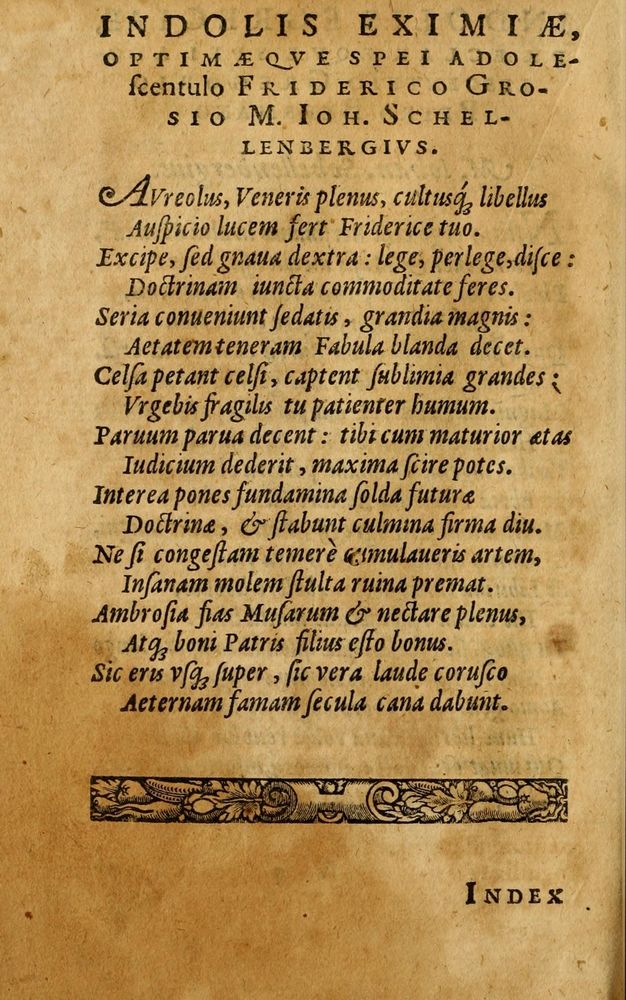 INDOLIS EXIMIÆ,
OPTIMÆQVE SPEI ADOLE-
ſcentulo FRIDERICO GRO-
SIO M. IOH. SCHEL-
LENBERGIVS.
AVreolus, Veneris plenus, cultusq́ꝫ libellus
Auſpicio lucem fert Friderice tuo.
Excipe, ſed gnaua dextra : lege, perlege,diſce :
Doctrinam iuncta commoditate feres.
Seria conueniunt ſedatis, grandia magnis :
Aetatem teneram Fabula blanda decet.
Celſa petant celſi, captent ſublimia grandes ;
Vrgebis fragilis tu patienter humum.
Paruum parua decent : tibi cum maturior ætas
Iudicium dederit, maxima ſcire potes.
Interea pones fundamina ſolda futuræ
Doctrinæ, & ſtabunt culmina firma diu.
Ne ſi congeſtam temerè cumulaueris artem,
Inſanam molem ſtulta ruina premat.
Ambroſia fias Muſarum & nectare plenus,
Atqꝫ boni Patris filius eſto bonus.
Sic eris vſqꝫ ſuper, ſic vera laude coruſco
Aeternam famam ſecula cana dabunt.
INDEX